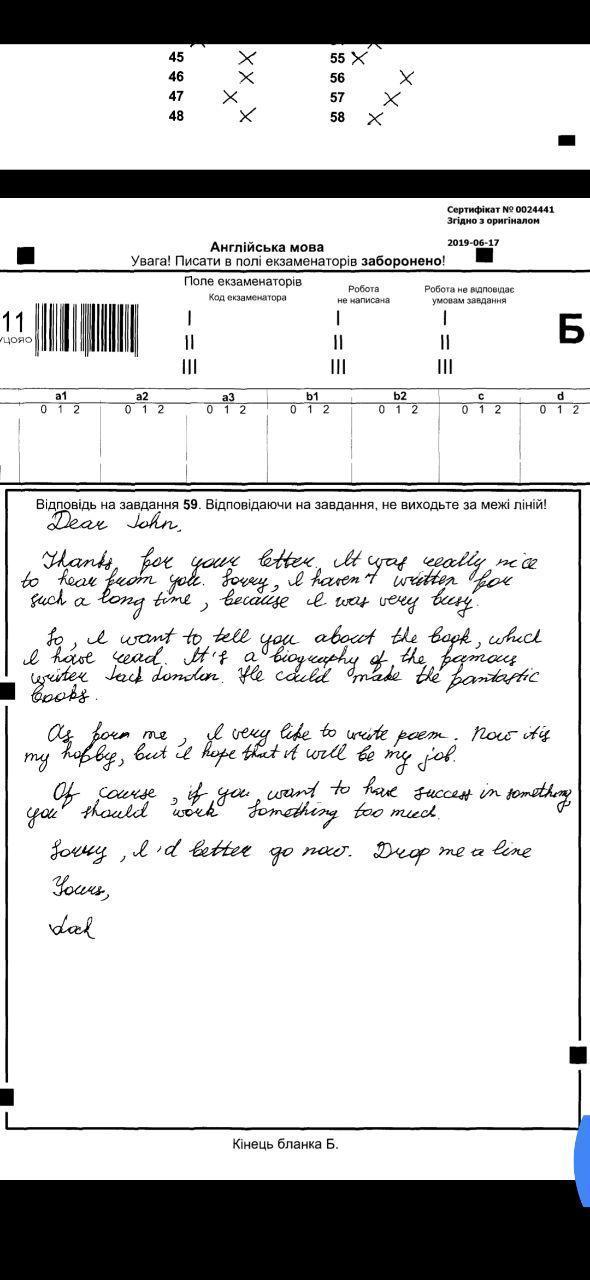 45 55
46 56
47 57
48 58
Сертифікат № 0024441
Згідно з оригіналом
2019-06-17
Англійська мова
Увага! Писати в полі екзаменаторів заборонено!
Поле екзаменаторів
Код екзаменатора
Робота не написана
Робота не відповідає умовам завдання
11
УЦОЯО
I I I
II II II
III III III
Б
a1 a2 a3 b1 b2 c d
0 1 2 0 1 2 0 1 2 0 1 2 0 1 2 0 1 2 0 1 2
Відповідь на завдання 59. Відповідаючи на завдання, не виходьте за межі ліній!
Dear John,
Thanks for your letter. It was really nice
to hear from you. Sorry, I haven't written for
such a long time, because I was very busy.
So, I want to tell you about the book, which
I have read. It's a biography of the famous
writer Jack London. He could make the fantastic
books.
As form me, I very like to write poem. Now it's
my hobby, but I hope that it will be my job.
Of course, if you want to have success in something,
you should work something too much.
Sorry, I'd better go now. Drop me a line
Yours,
Jack
Кінець бланка Б.